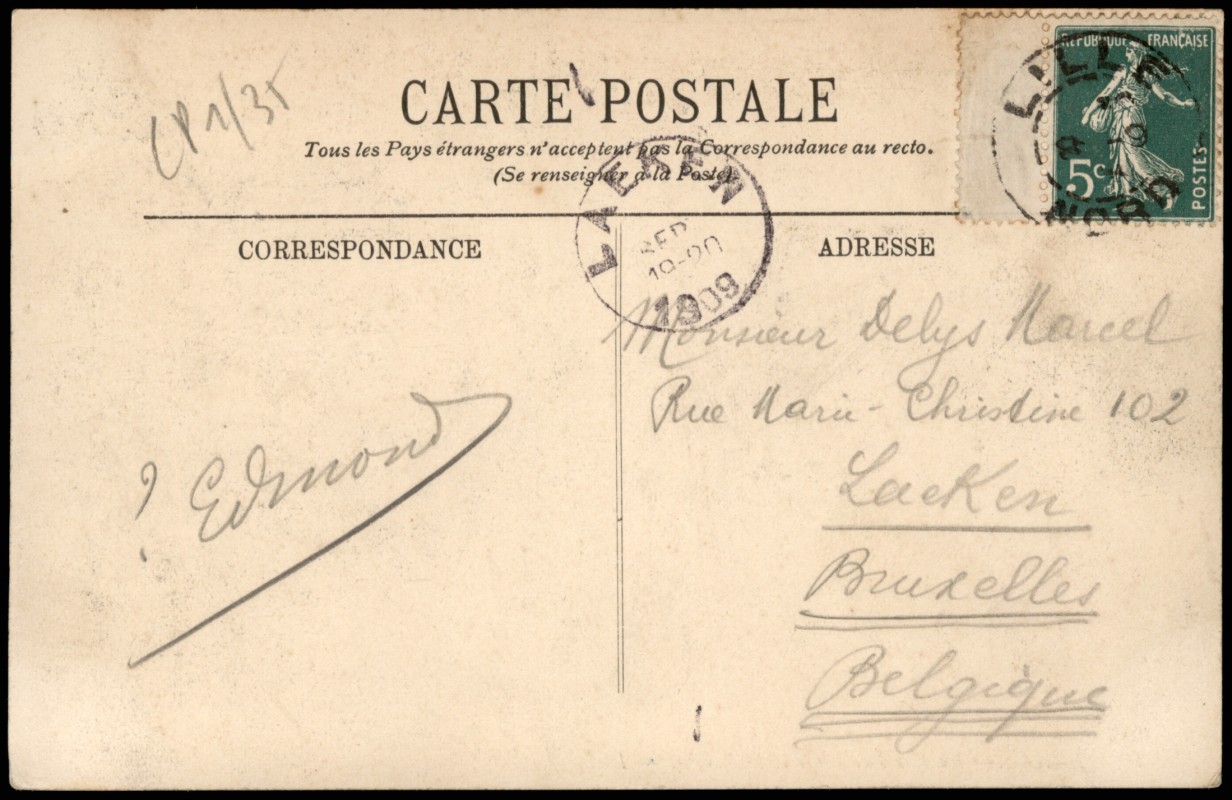 CARTE POSTALE
Tous les Pays étrangers n'acceptent pas la Correspondance au recto.
(Se renseigner à la Poste).
CP 1/35
REPUBLIQUE FRANÇAISE
5c
POSTES
LILLE
NORD
LAEKEN
SEP.
18-20
1909
CORRESPONDANCE
ADRESSE
? Edmond
Monsieur Delys Marcel
Rue Marie-Christine 102
Laeken
Bruxelles
Belgique